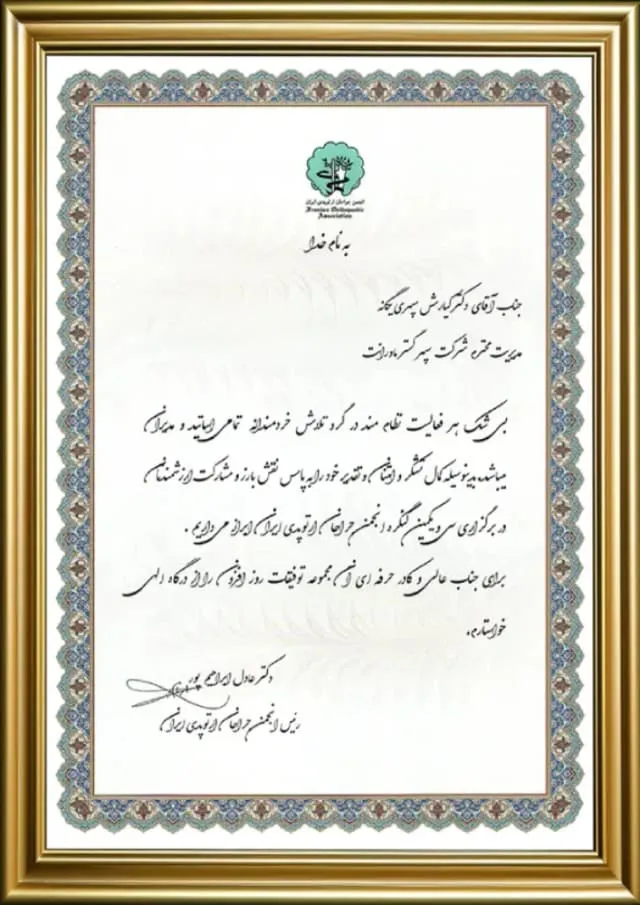 انجمن جراحان ارتوپدی ایران
Iranian Orthopaedic
Association
به نام خدا
جناب آقای دکتر کیارش سپهری یگانه
مدیریت محترم شرکت سپهر گستر ماورانت
بی شک هر فعالیت نظام مند در گرو تلاش خردمندانه تمامی اساتید و مدیران
میباشد، بدینوسیله کمال تشکر و امتنان و تقدیر خود را به پاس نقش بارز و مشارکت ارزشمندتان
در برگزاری سی و یکمین کنگره انجمن جراحان ارتوپدی ایران ابراز می داریم .
برای جناب عالی و کادر حرفه ای آن مجموعه توفیقات روز افزون را از درگاه الهی
خواستارم.
دکتر عادل ابراهیم پور
رئیس انجمن جراحان ارتوپدی ایران